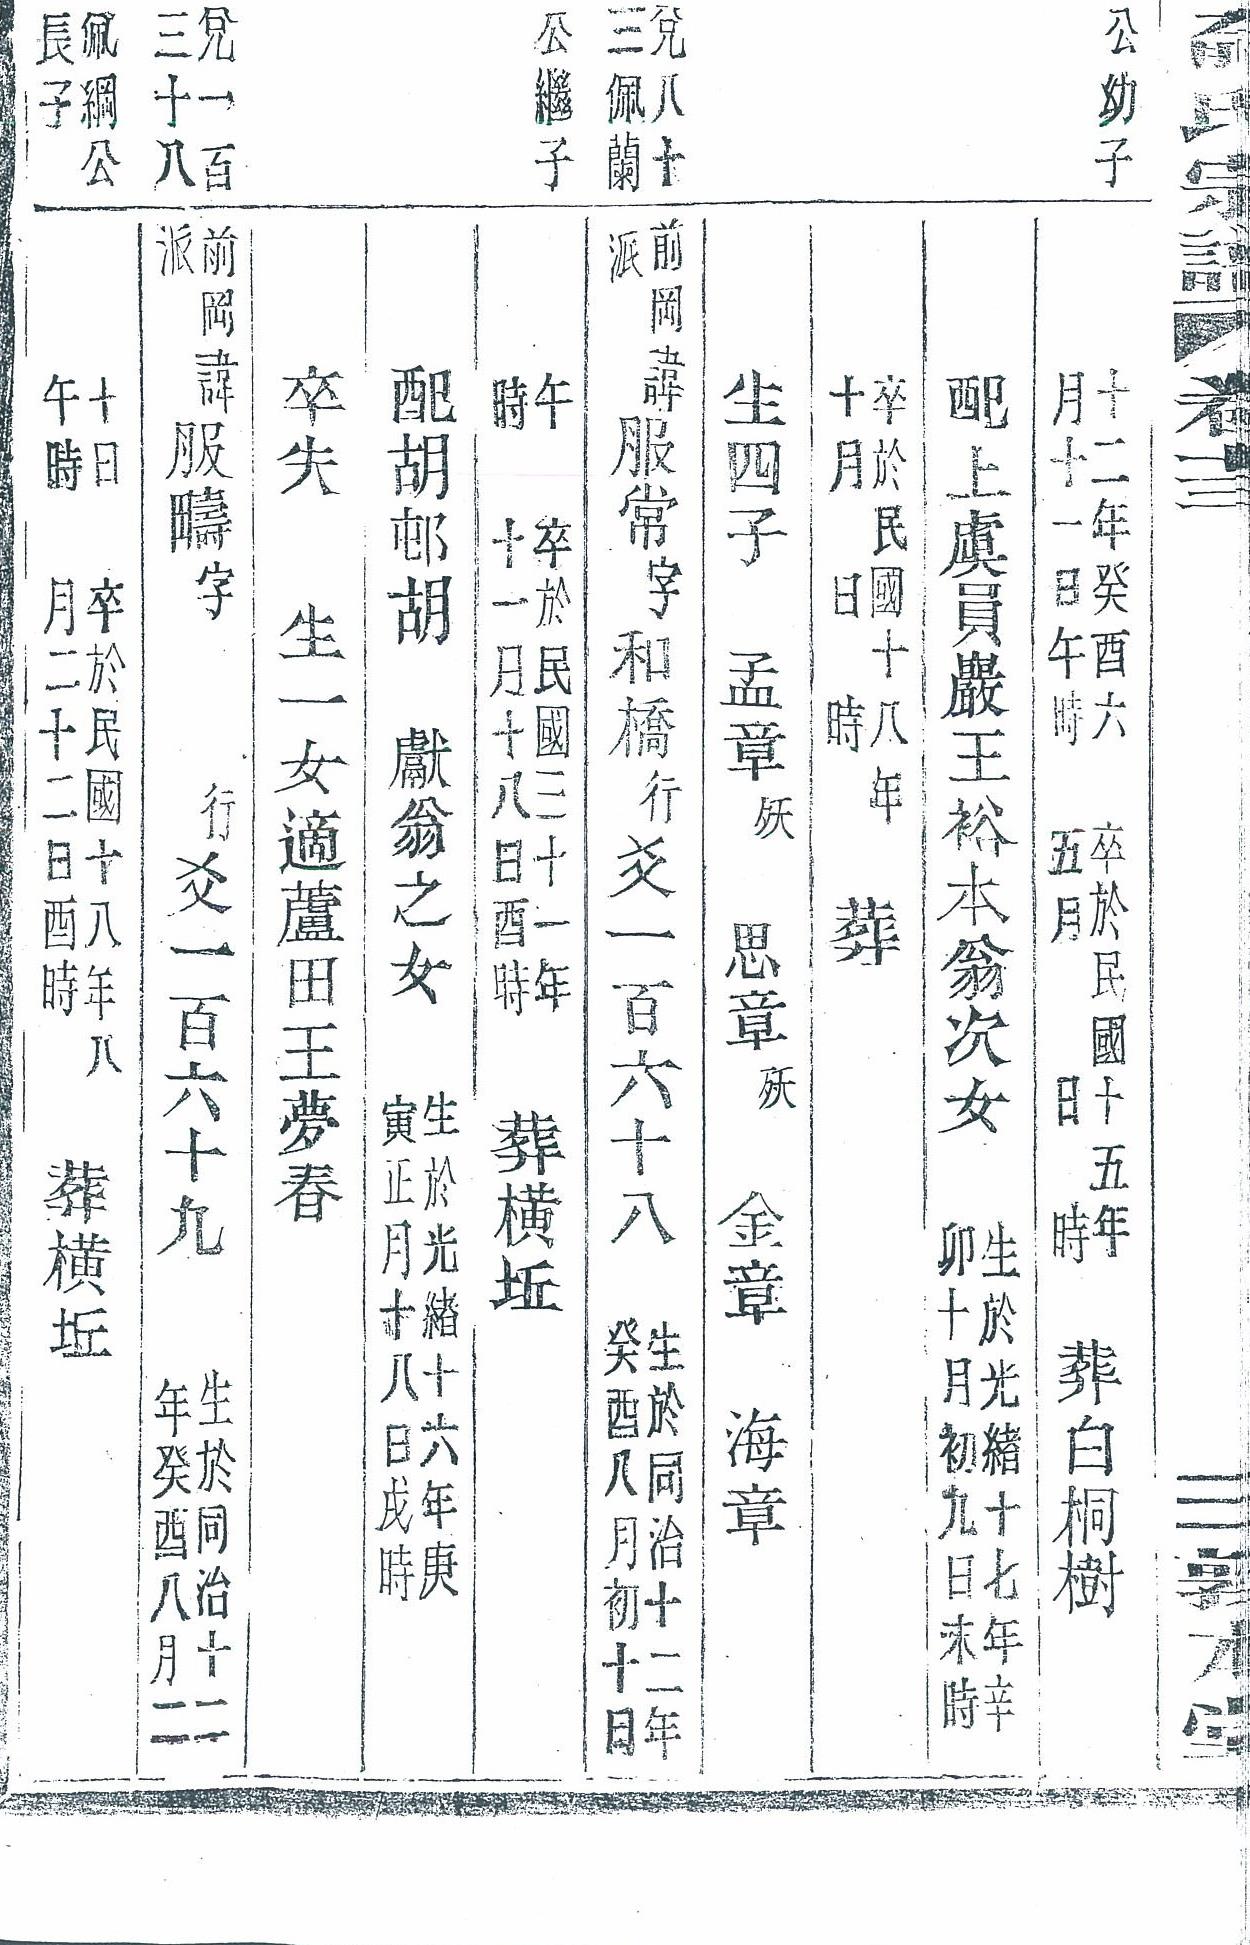 氏宗譜 卷三 三 敦本堂
公幼子
十二年癸酉六
月十一日午時
卒於民國十五年
五月 日 時
葬白桐樹
配上虞員嚴王裕本翁次女
生於光緒十七年辛
卯十月初九日未時
卒於民國十八年
十月 日 時
葬
生四子 孟章殀 思章殀 金章 海章
兌八十
三佩蘭
公繼子
前岡
派
諱服常字和橋行爻一百六十八
生於同治十二年
癸酉八月初十日
午
時
卒於民國三十一年
十一月十八日酉時
葬橫坵
配胡邨胡 獻翁之女
生於光緒十六年庚
寅正月十八日戌時
卒失 生一女適蘆田王夢春
兌一百
三十八
佩綱公
長子
前岡
派
諱服疇字 行爻一百六十九
生於同治十二
年癸酉八月二
十日
午時
卒於民國十八年八
月二十二日酉時
葬橫坵